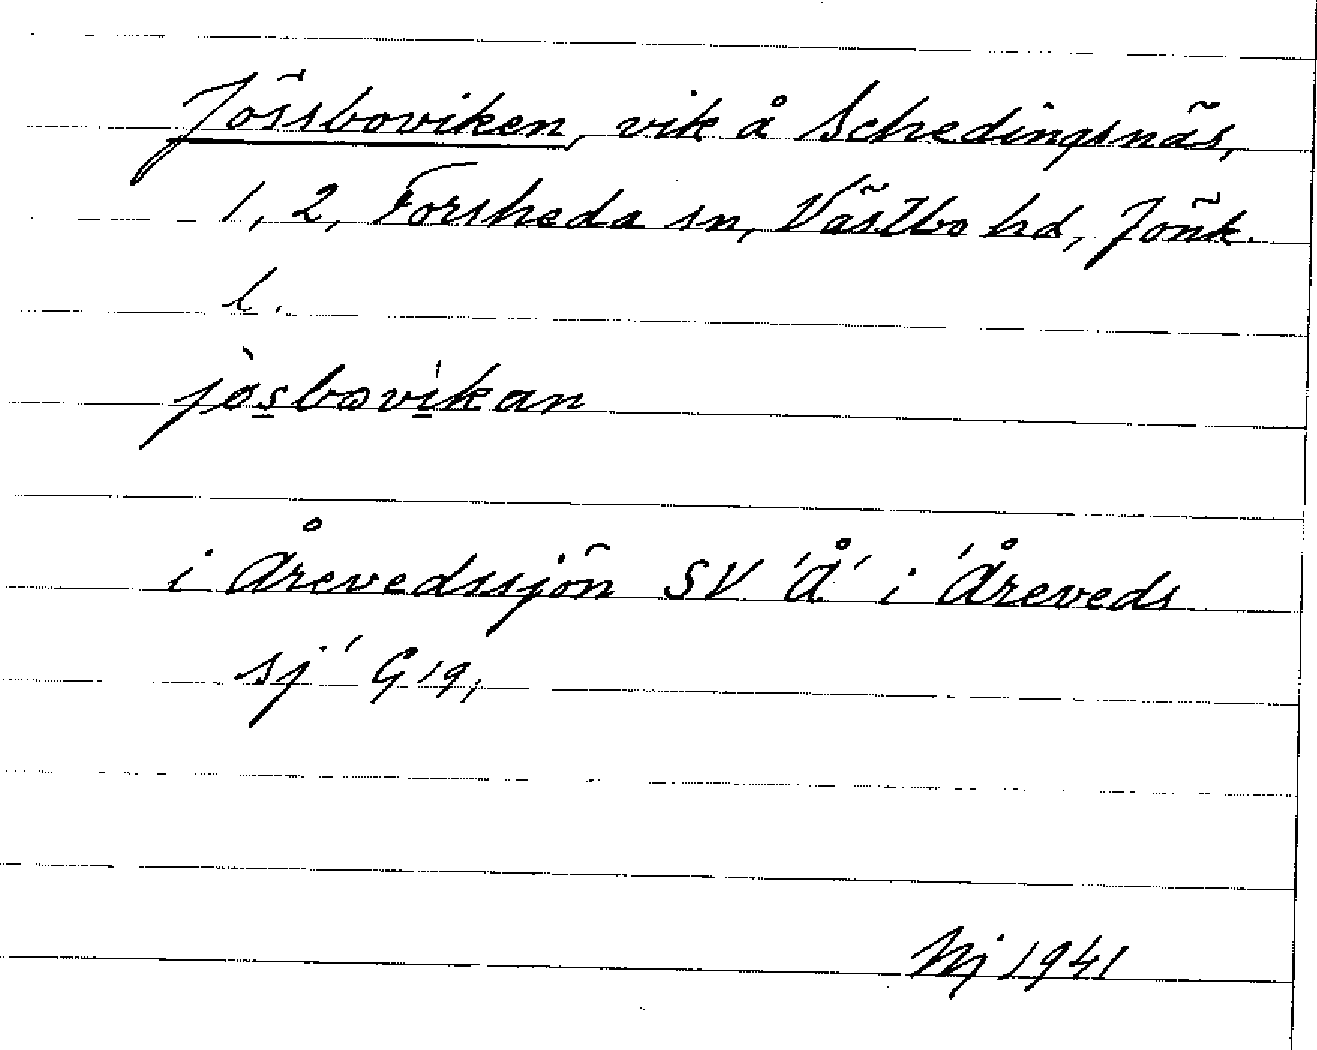 Jössboviken, vik å Schedingsnäs,
1, 2, Forsheda sn, Västbo hd, Jönk.
l.
jòsbovíkan
i Årevedssjön SV 'Å' i 'Åreveds
sj' G 19,
1941